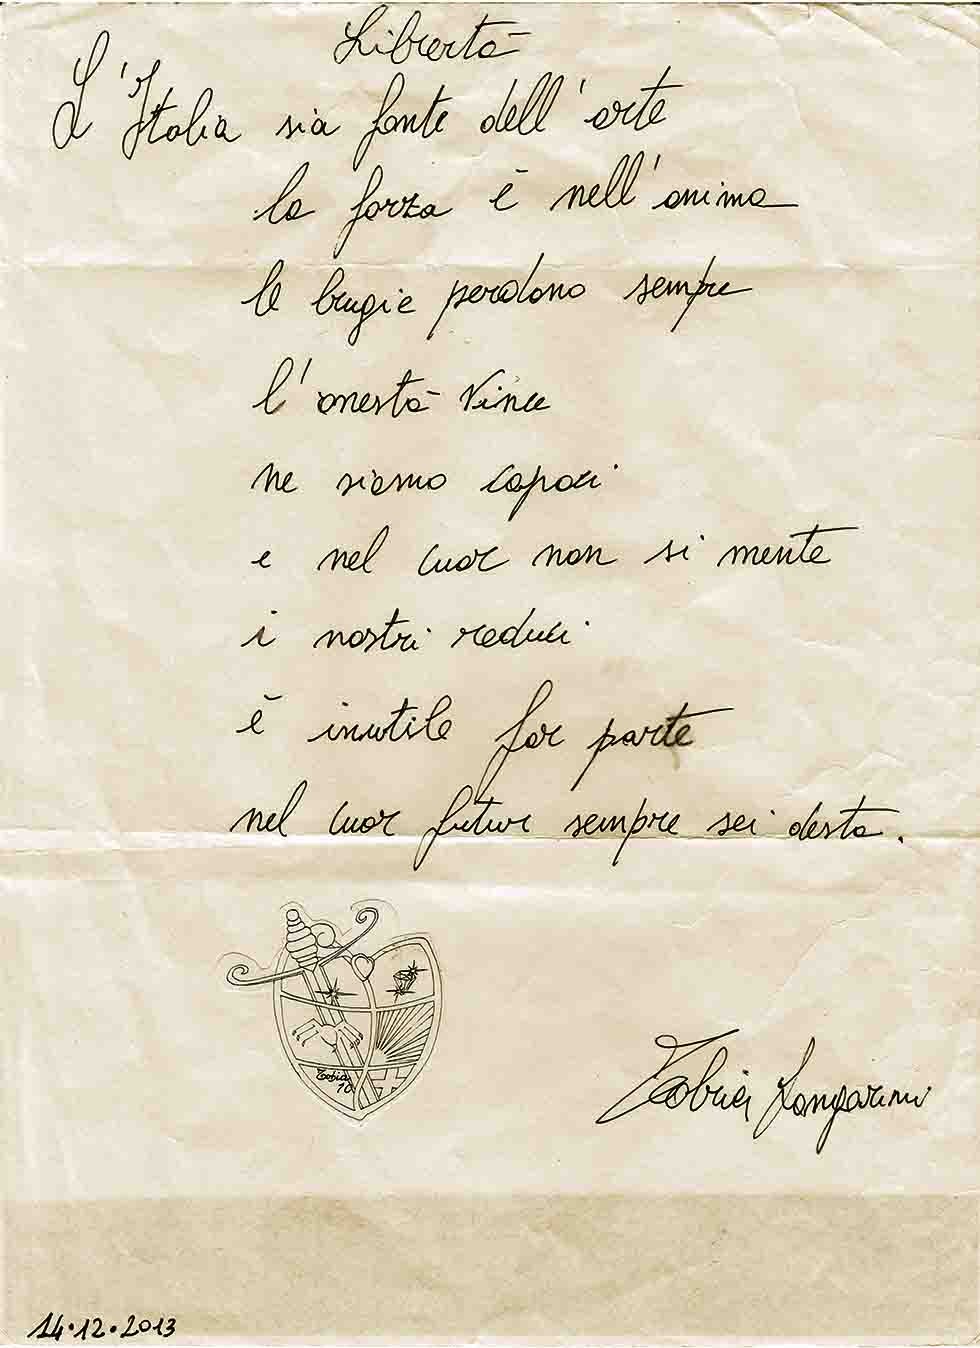 Libertà
L'Italia sia fonte dell'arte
la forza è nell'anima
le bugie perdono sempre
l'onestà vince
ne siamo capaci
e nel cuor non si mente
i nostri reduci
è inutile far parte
nel cuor futur sempre sei desta.
Tobia
10
Tobia Longarini
14.12.2013